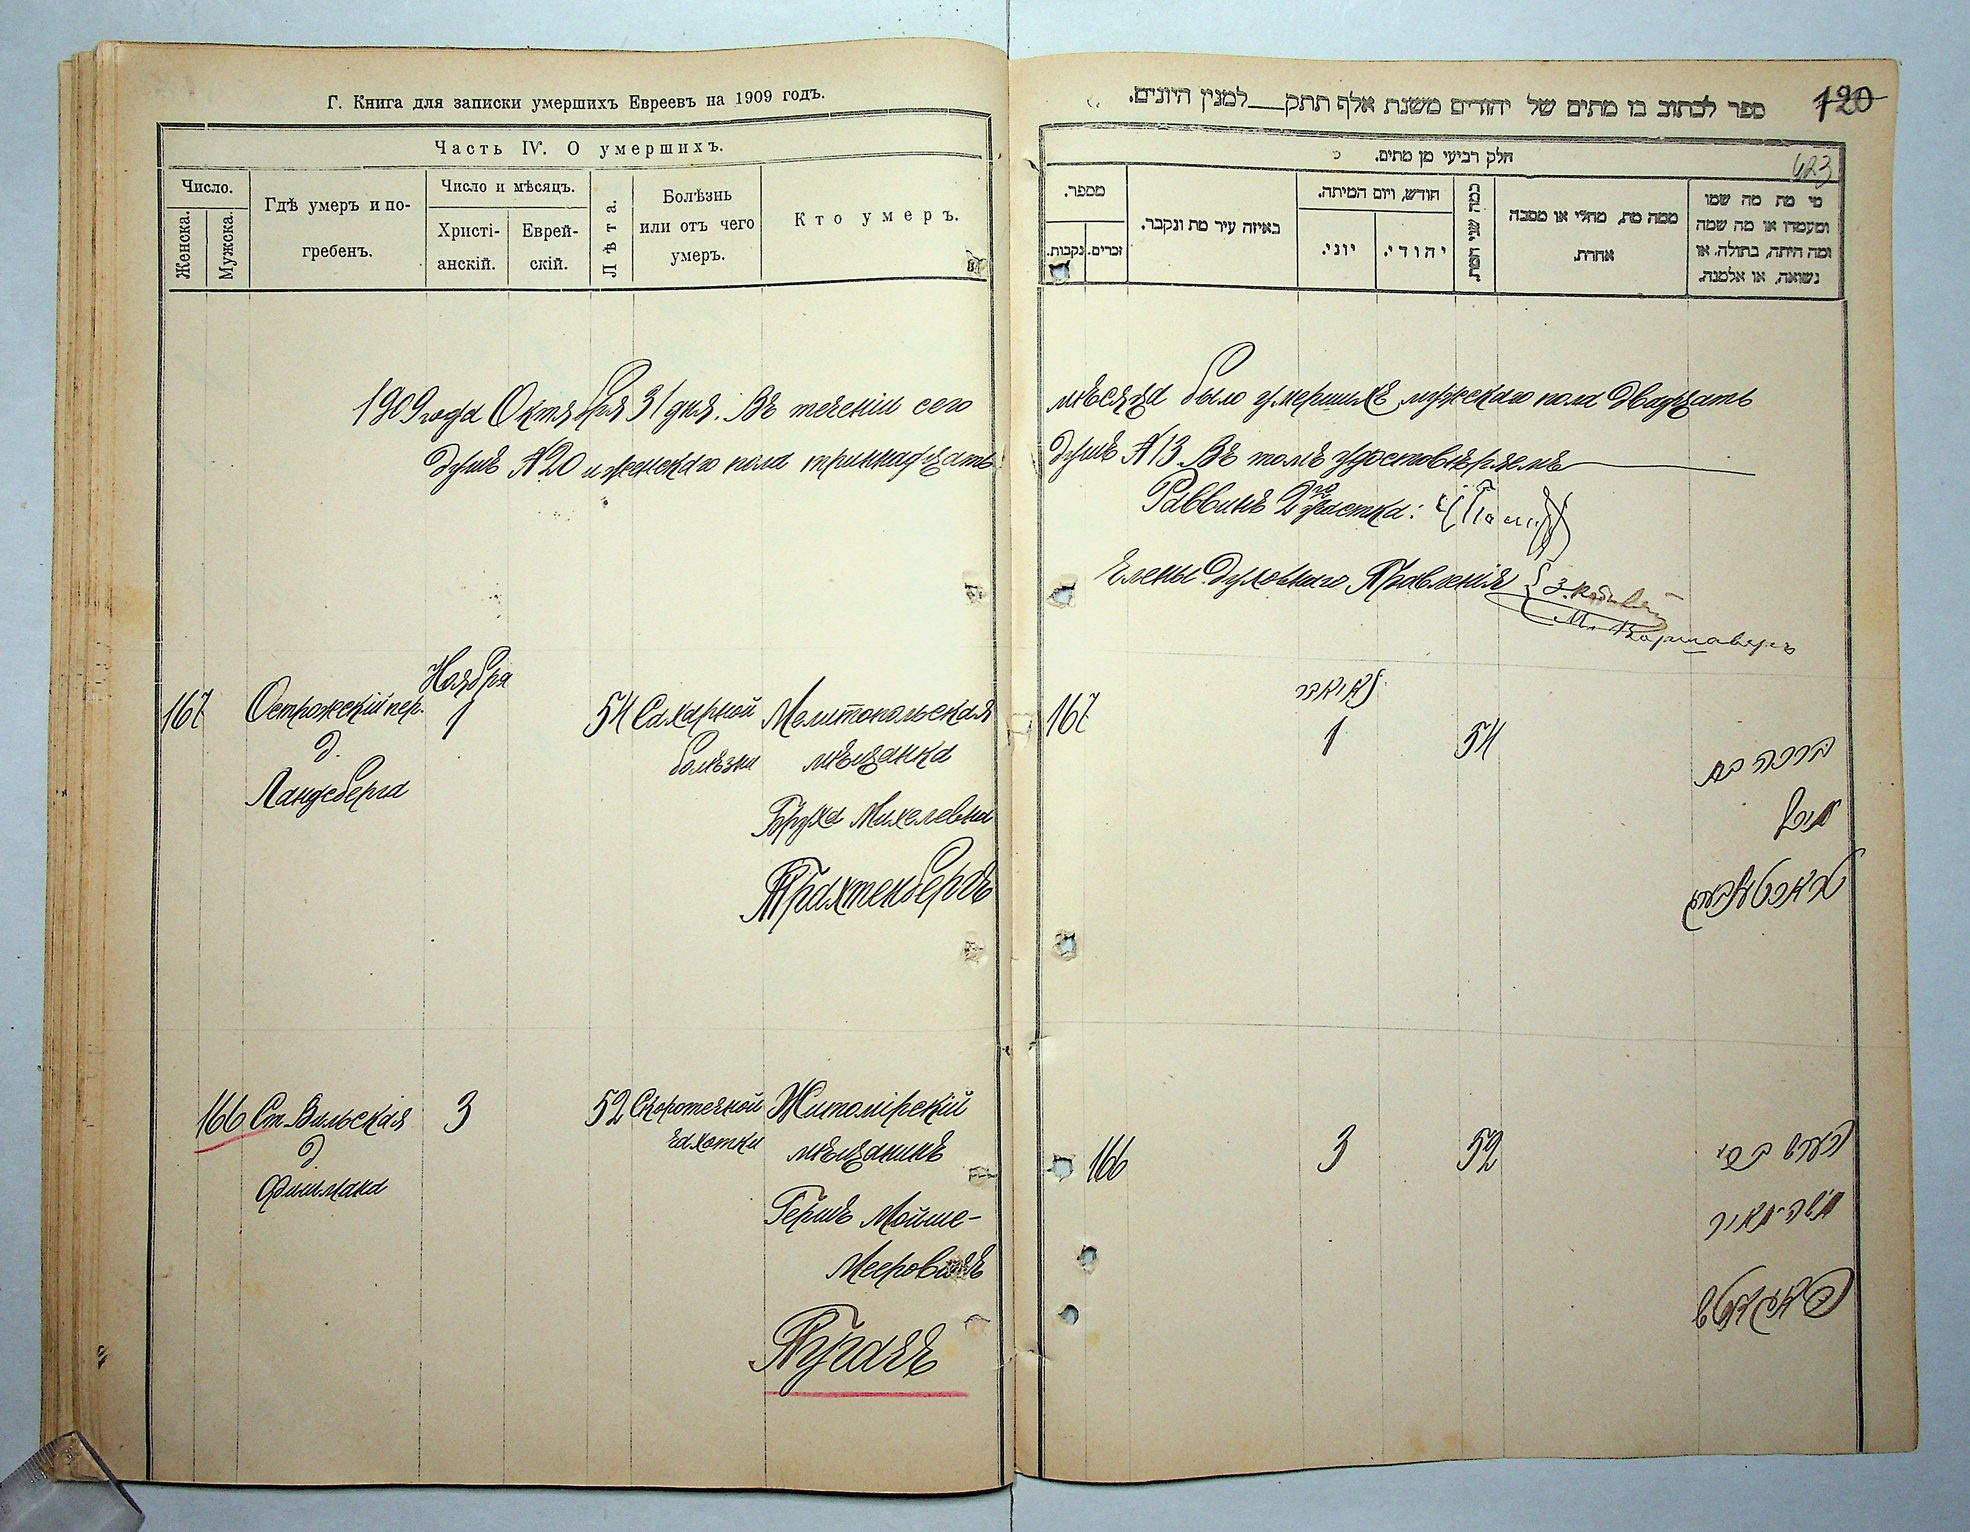 Г. Книга для записки умершихъ Евреевъ на 1909 годъ.
Часть IV. О умершихъ.
Число.
Женска.
Мужска.
Гдѣ умеръ и по-
гребенъ.
Число и мѣсяцъ.
Христі-
анскій.
Еврей-
скій.
Лѣта.
Болѣзнь
или отъ чего
умеръ.
Кто умеръ.
1909 года Октября 31 дня. Въ теченіи сего
душъ №20 и женскаго пола тринадцать
Ноября
167 Острожскій пер. 1 54 Сахарной Мелитопольская
д. болѣзни мѣщанка
Ландсберга
Бруха Михелевна
Трахтенбергъ
166 Ст. Вильская 3 52 Скоротечной Житомірскій
д. чахотки мѣщанинъ
Фишмана
Гершъ Мойше-
Мееровичъ
ספר לכתוב בו מתים של יהודים משנת אלף תתק___למנין היונים.
120
חלק רביעי מן מתים.
623
מספר.
נקבות.
זכרים.
באיזה עיר מת ונקבר.
חודש, ויום המיתה.
יוני.
יהודי.
כמה שני המת.
ממה מת, מחלי או מסבה
אחרת.
מי מת מה שמו
ומעמדו או מה שמה
ומה היתה, בתולה, או
נשואה, או אלמנה.
мѣсяца было умершихъ мужскаго пола двадцать
душъ №13. Въ томъ удостовѣряемъ
Раввинъ 2го участка:
Члены Духовнаго Правленія
М. Варшаверъ
נאיאבר
167 1 54
ברכה בת
מיכל
טראכטענבערג
166 3 52
הערש בן
משה-מאיר